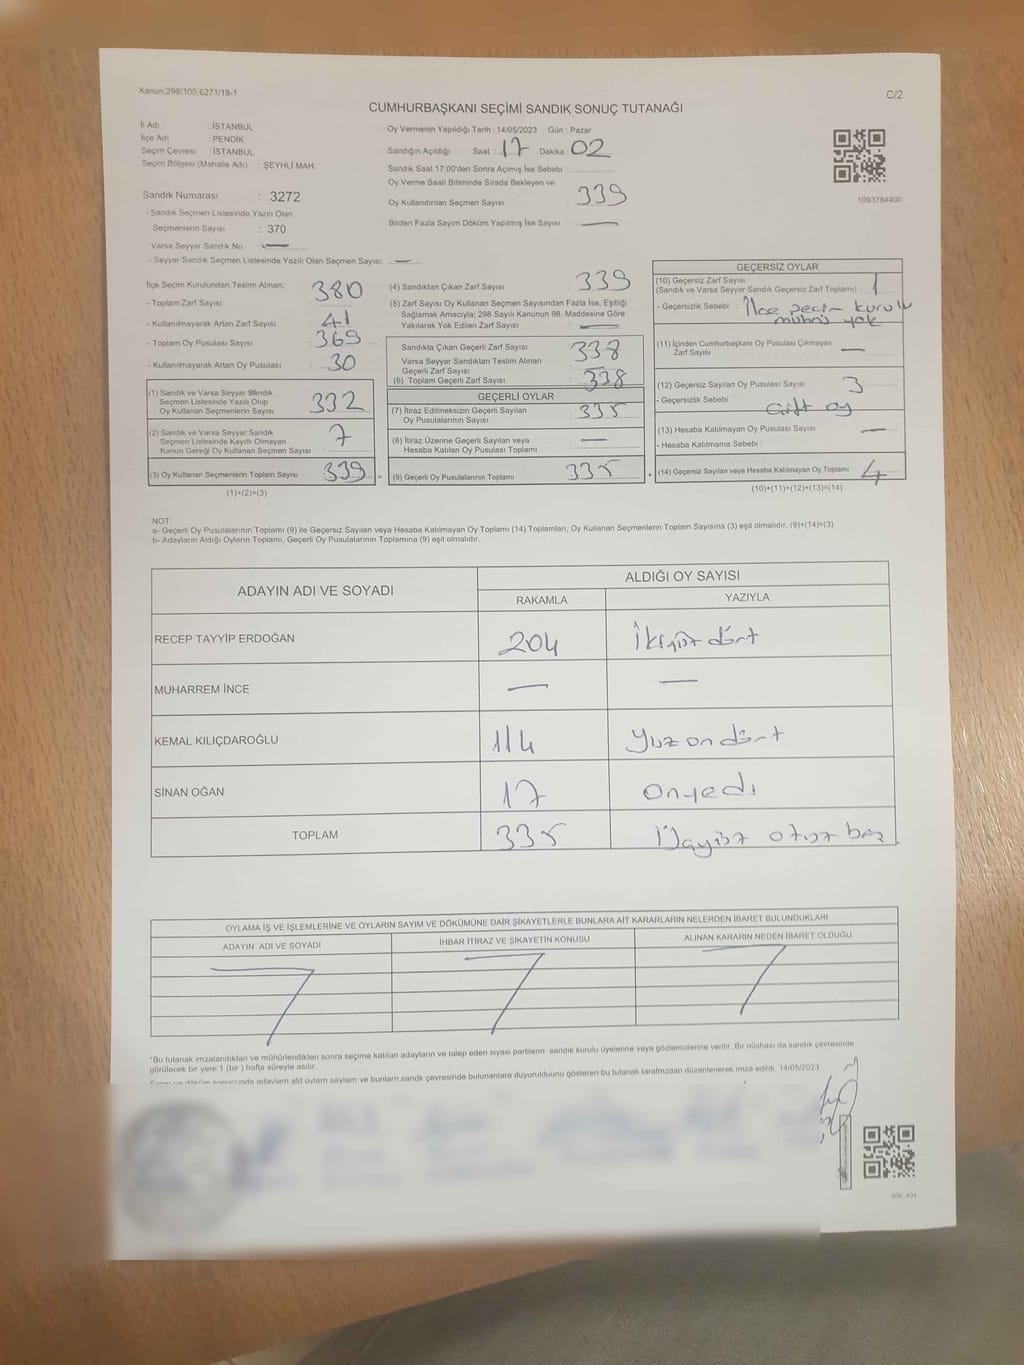 Kanun.298/105,6271/18-1
C/2
CUMHURBAŞKANI SEÇİMİ SANDIK SONUÇ TUTANAĞI
İl Adı : İSTANBUL
İlçe Adı : PENDİK
Seçim Çevresi : İSTANBUL
Seçim Bölgesi (Mahalle Adı) : ŞEYHLİ MAH.
Sandık Numarası : 3272
- Sandık Seçmen Listesinde Yazılı Olan
Seçmenlerin Sayısı : 370
Varsa Seyyar Sandık No : —
- Seyyar Sandık Seçmen Listesinde Yazılı Olan Seçmen Sayısı: —
Oy Vermenin Yapıldığı Tarih : 14/05/2023 Gün : Pazar
Sandığın Açıldığı Saat : 17 Dakika : 02
Sandık Saat 17:00'den Sonra Açımış İse Sebebi :
Oy Verme Saati Bitiminde Sırada Bekleyen ve
Oy Kullandırılan Seçmen Sayısı : 339
Birden Fazla Sayım Döküm Yapılmış İse Sayısı : —
1093784400
İlçe Seçim Kurulundan Teslim Alınan;
- Toplam Zarf Sayısı : 380
- Kullanılmayarak Artan Zarf Sayısı : 41
- Toplam Oy Pusulası Sayısı : 369
- Kullanılmayarak Artan Oy Pusulası : 30
(1) Sandık ve Varsa Seyyar Sandık
Seçmen Listesinde Yazılı Olup
Oy Kullanan Seçmenlerin Sayısı : 332
(2) Sandık ve Varsa Seyyar Sandık
Seçmen Listesinde Kayıtlı Olmayan
Kanun Gereği Oy Kullanan Seçmen Sayısı : 7
(3) Oy Kullanan Seçmenlerin Toplam Sayısı : 339 =
(1)+(2)=(3)
(4) Sandıktan Çıkan Zarf Sayısı : 339
(5) Zarf Sayısı Oy Kullanan Seçmen Sayısından Fazla İse, Eşitliği
Sağlamak Amacıyla; 298 Sayılı Kanunun 98. Maddesine Göre
Yakılarak Yok Edilen Zarf Sayısı : —
Sandıkta Çıkan Geçerli Zarf Sayısı : 338
Varsa Seyyar Sandıktan Teslim Alınan
Geçerli Zarf Sayısı :
(6) Toplam Geçerli Zarf Sayısı : 338
GEÇERLİ OYLAR
(7) İtiraz Edilmeksizin Geçerli Sayılan
Oy Pusulalarının Sayısı : 335
(8) İtiraz Üzerine Geçerli Sayılan veya
Hesaba Katılan Oy Pusulası Toplamı : —
(9) Geçerli Oy Pusulalarının Toplamı : 335 +
GEÇERSİZ OYLAR
(10) Geçersiz Zarf Sayısı
(Sandık ve Varsa Seyyar Sandık Geçersiz Zarf Toplamı) : 1
- Geçersizlik Sebebi : İlçe seçim kurulu
mührü yok
(11) İçinden Cumhurbaşkanı Oy Pusulası Çıkmayan
Zarf Sayısı : —
(12) Geçersiz Sayılan Oy Pusulası Sayısı : 3
- Geçersizlik Sebebi : Çift oy
(13) Hesaba Katılmayan Oy Pusulası Sayısı : —
- Hesaba Katılmama Sebebi :
(14) Geçersiz Sayılan veya Hesaba Katılmayan Oy Toplamı : 4
(10)+(11)+(12)+(13)=(14)
NOT:
a- Geçerli Oy Pusulalarının Toplamı (9) ile Geçersiz Sayılan veya Hesaba Katılmayan Oy Toplamı (14) Toplamları, Oy Kullanan Seçmenlerin Toplam Sayısına (3) eşit olmalıdır. (9)+(14)=(3)
b- Adayların Aldığı Oyların Toplamı, Geçerli Oy Pusulalarının Toplamına (9) eşit olmalıdır.
ADAYIN ADI VE SOYADI ALDIĞI OY SAYISI
RAKAMLA YAZIYLA
RECEP TAYYİP ERDOĞAN 204 İkiyüz dört
MUHARREM İNCE — —
KEMAL KILIÇDAROĞLU 114 Yüz on dört
SİNAN OĞAN 17 Onyedi
TOPLAM 335 Üçyüz otuz beş
OYLAMA İŞ VE İŞLEMLERİNE VE OYLARIN SAYIM VE DÖKÜMÜNE DAİR ŞİKAYETLERLE BUNLARA AİT KARARLARIN NELERDEN İBARET BULUNDUKLARI
ADAYIN ADI VE SOYADI İHBAR İTİRAZ VE ŞİKAYETİN KONUSU ALINAN KARARIN NEDEN İBARET OLDUĞU
*Bu tutanak imzalandıktan ve mühürlendikten sonra seçime katılan adayların ve talep eden siyasi partilerin sandık kurulu üyelerine veya gözlemcilerine verilir. Bir nüshası da sandık çevresinde
görülecek bir yere 1 (bir) hafta süreyle asılır.
adayların aldı oyların sayıları ve bunların sandık çevresinde bulunanlara duyurulduunu gösteren bu tutanak tarafımızdan düzenlenerek imza edildi. 14/05/2023